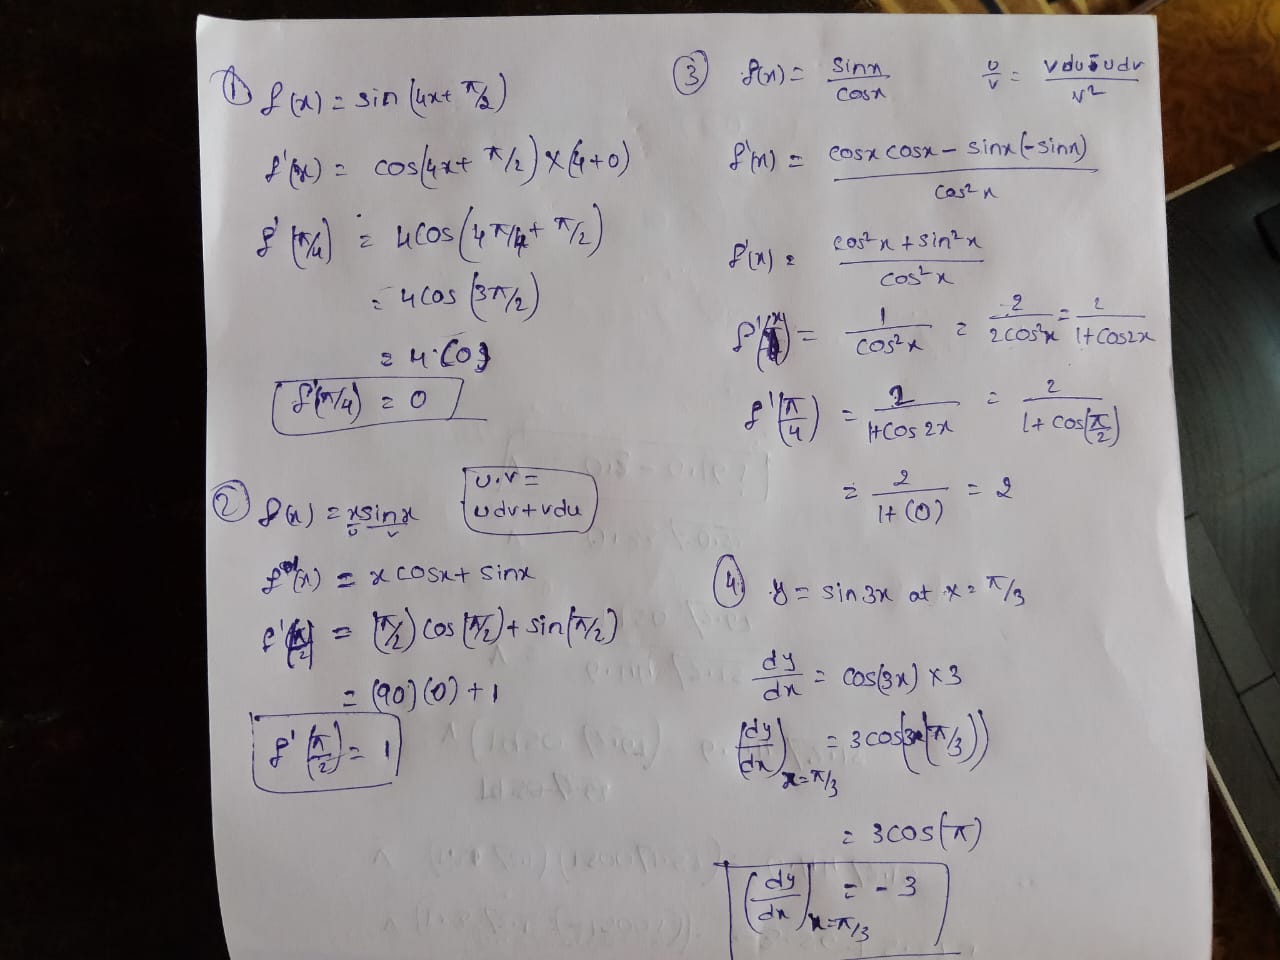 ① f(x) = sin(4x+π/2)
f'(x) = cos(4x+π/2)×(4+0)
f'(π/4) = 4cos(4π/4+π/2)
= 4cos(3π/2)
= 4·(0)
f'(π/4) = 0
② f(x) = xsinx
u v
u·v =
udv+vdu
f'(x) = x cosx + sinx
f'(π/2) = (π/2) cos(π/2) + sin(π/2)
= (90)(0)+1
f'(π/2) = 1
③ f(x) = sinx/cosx u/v = vdu-udv/v²
f'(x) = cosx cosx - sinx(-sinx)/cos²x
f'(x) = cos²x + sin²x/cos²x
f'(x) = 1/cos²x = 2/2cos²x = 2/1+cos2x
f'(π/4) = 2/1+cos2x = 2/1+cos(π/2)
= 2/1+(0) = 2
④ y = sin3x at x = π/3
dy/dx = cos(3x)×3
(dy/dx)x=π/3 = 3cos(3(π/3))
= 3cos(π)
(dy/dx)x=π/3 = -3